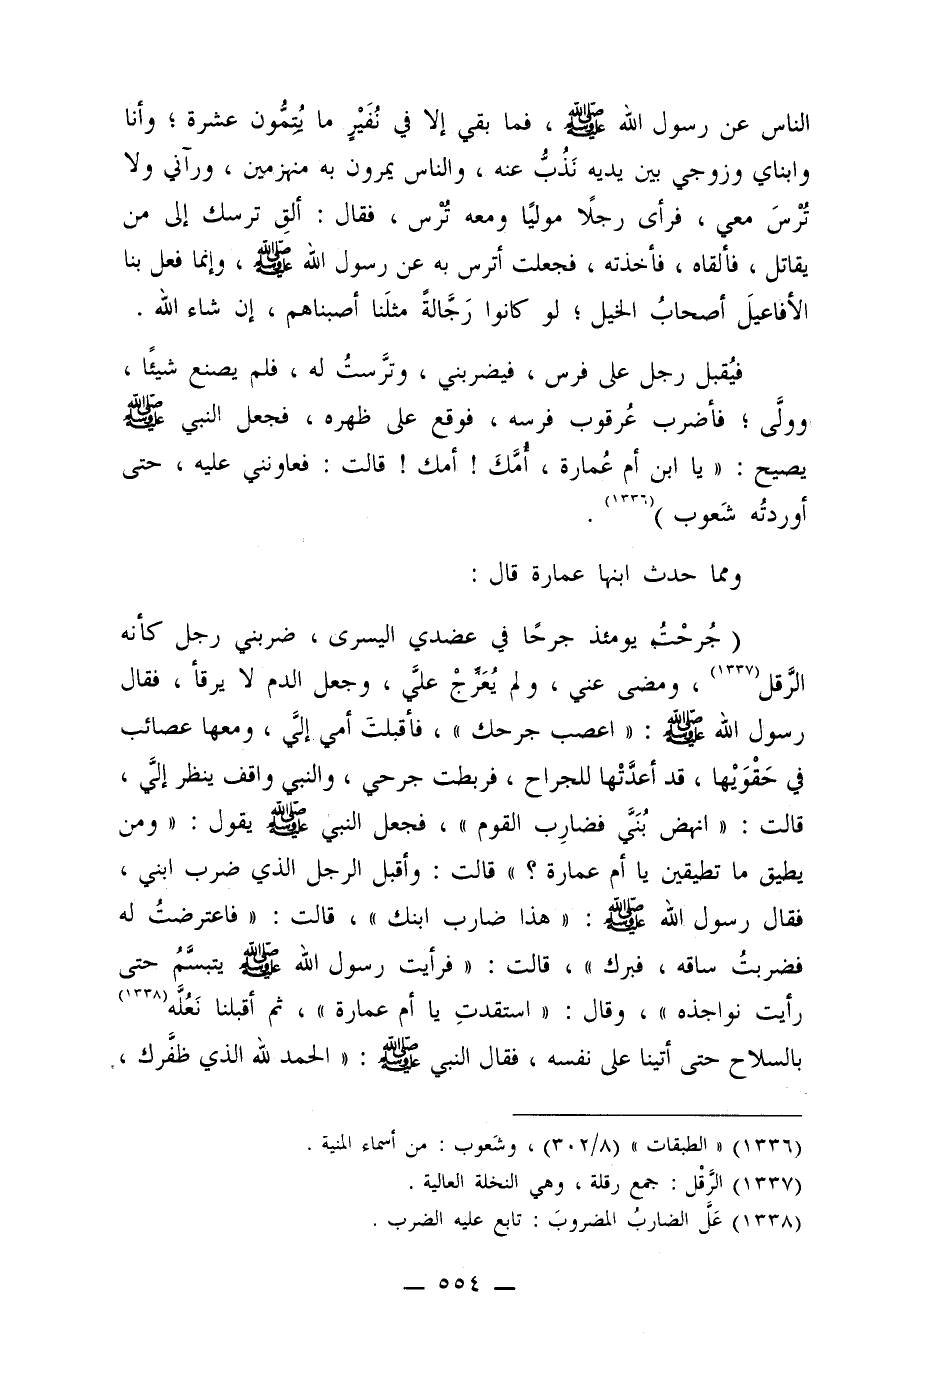 الناس عن رسول الله ﷺ ، فما بقي إلا في نُفَيْرٍ ما يُتِمُّون عشرة ؛ وأنا
وابناي وزوجي بين يديه نَذُبُّ عنه ، والناس يمرون به منهزمين ، ورآني ولا
تُرْسَ معي ، فرأى رجلًا موليًا ومعه تُرْس ، فقال : ألقِ ترسك إلى من
يقاتل ، فألقاه ، فأخذته ، فجعلت أترس به عن رسول الله ﷺ ، وإنما فعل بنا
الأفاعيلَ أصحابُ الخيل ؛ لو كانوا رَجَّالةً مثلَنا أصبناهم ، إن شاء الله .
فيُقبل رجل على فرس ، فيضربني ، وترَّستُ له ، فلم يصنع شيئًا ،
وولَّى ؛ فأضرب عُرقوب فرسه ، فوقع على ظهره ، فجعل النبي ﷺ
يصيح : « يا ابن أم عُمارة ، أُمَّكَ ! أمك ! قالت : فعاونني عليه ، حتى
أوردتُه شَعوب )(١٣٣٦) .
ومما حدث ابنها عمارة قال :
( جُرحْتُ يومئذ جرحًا في عضدي اليسرى ، ضربني رجل كأنه
الرَّقل(١٣٣٧) ، ومضى عني ، ولم يُعَرِّجْ عليَّ ، وجعل الدم لا يرقأ ، فقال
رسول الله ﷺ : « اعصب جرحك » ، فأقبلتَ أمي إليَّ ، ومعها عصائب
في حَقْوَيْها ، قد أعدَّتْها للجراح ، فربطت جرحي ، والنبي واقف ينظر إليَّ ،
قالت : « انهض بُنَيَّ فضارِب القوم » ، فجعل النبي ﷺ يقول : « ومن
يطيق ما تطيقين يا أم عمارة ؟ » قالت : وأقبل الرجل الذي ضرب ابني ،
فقال رسول الله ﷺ : « هذا ضارب ابنك » ، قالت : « فاعترضتُ له
فضربتُ ساقه ، فبرك » ، قالت : « فرأيت رسول الله ﷺ يتبسَّمُ حتى
رأيت نواجذه » ، وقال : « استقدتِ يا أم عمارة » ، ثم أقبلنا نَعُلَّه(١٣٣٨)
بالسلاح حتى أتينا على نفسه ، فقال النبي ﷺ : « الحمد لله الذي ظفَّرك ،
(١٣٣٦) « الطبقات » (٣٠٢/٨) ، وشَعوب : من أسماء المنية .
(١٣٣٧) الرَّقْل : جمع رقلة ، وهي النخلة العالية .
(١٣٣٨) عَلَّ الضاربُ المضروبَ : تابع عليه الضرب .
— ٥٥٤ —